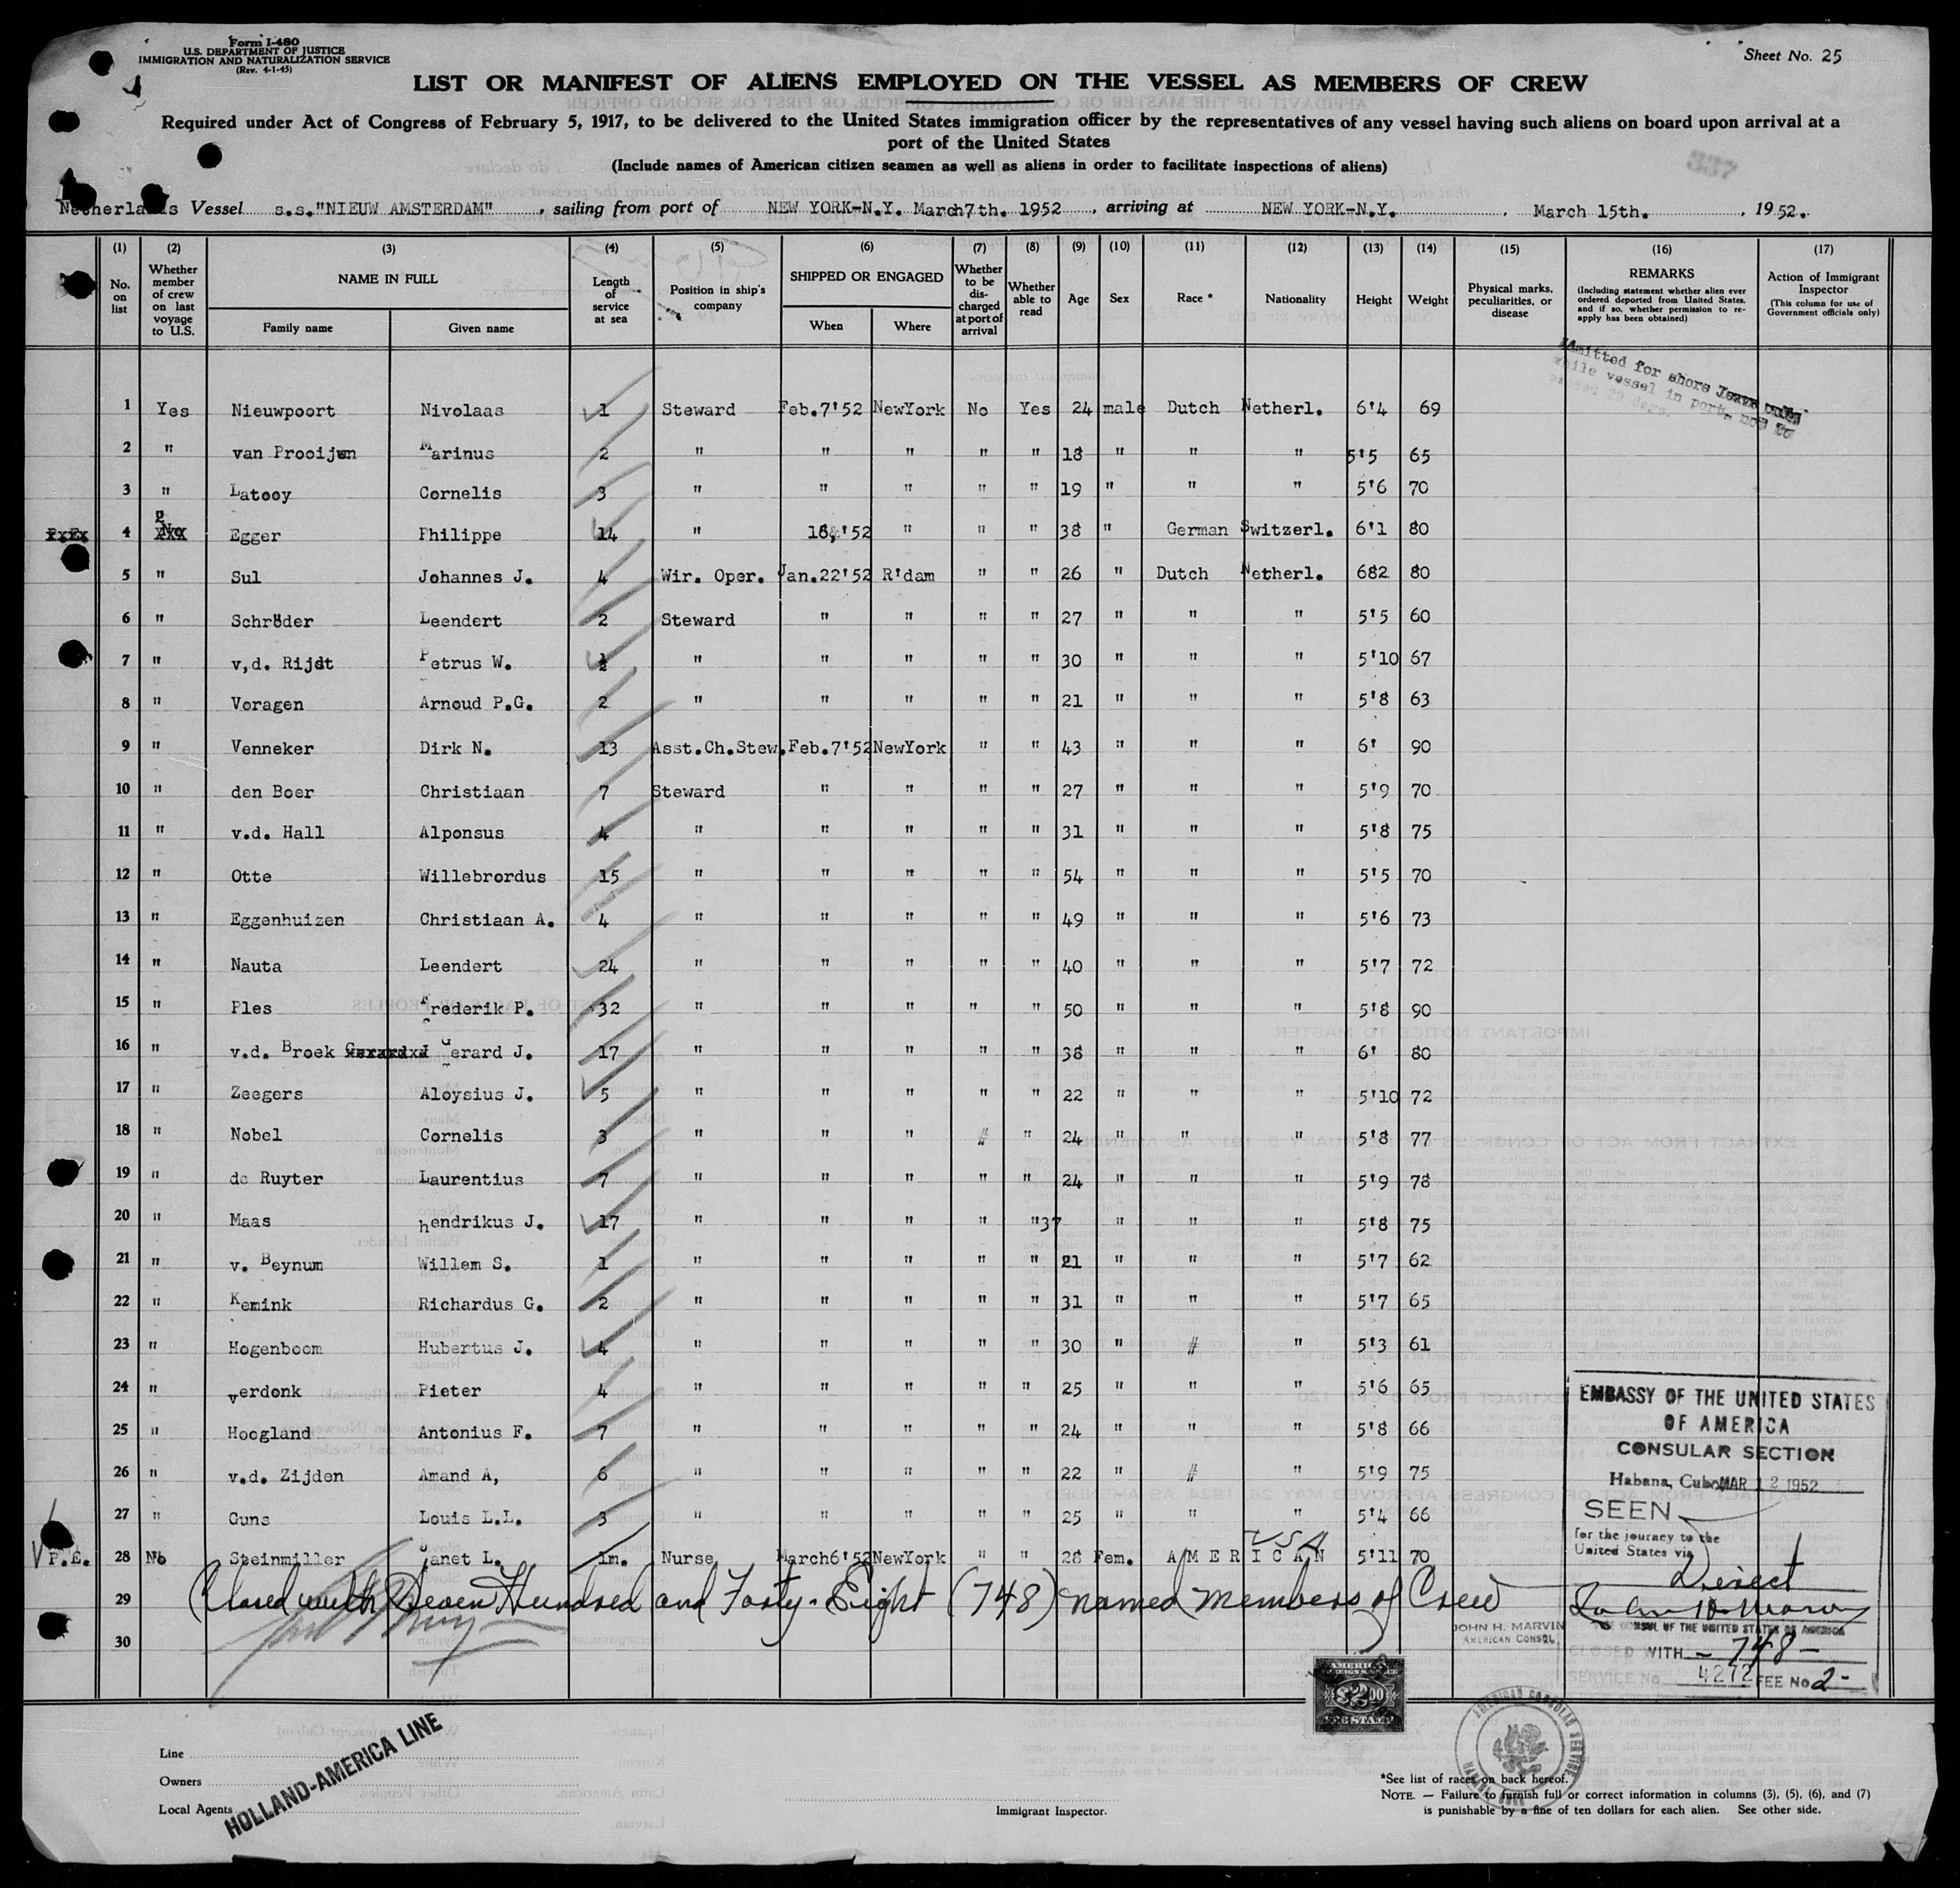 Form I-480
U.S. DEPARTMENT OF JUSTICE
IMMIGRATION AND NATURALIZATION SERVICE
(Rev. 4-1-45)
Sheet No. 25
LIST OR MANIFEST OF ALIENS EMPLOYED ON THE VESSEL AS MEMBERS OF CREW
Required under Act of Congress of February 5, 1917, to be delivered to the United States immigration officer by the representatives of any vessel having such aliens on board upon arrival at a
port of the United States
(Include names of American citizen seamen as well as aliens in order to facilitate inspections of aliens)
337
Netherlands Vessel s.s."NIEUW AMSTERDAM", sailing from port of NEW YORK-N.Y. March7th. 1952, arriving at NEW YORK-N.Y., March 15th., 1952.
(1) (2) (3) (4) (5) (6) (7) (8) (9) (10) (11) (12) (13) (14) (15) (16) (17)
No. on list
Whether member of crew on last voyage to U.S.
NAME IN FULL
Family name
Given name
Length of service at sea
Position in ship's company
SHIPPED OR ENGAGED
When
Where
Whether to be discharged at port of arrival
Whether able to read
Age
Sex
Race *
Nationality
Height
Weight
Physical marks, peculiarities, or disease
REMARKS
(Including statement whether alien ever ordered deported from United States, and if so, whether permission to re-apply has been obtained)
Action of Immigrant Inspector
(This column for use of Government officials only)
Admitted for shore leave only
while vessel in port, not to
exceed 29 days.
1 Yes Nieuwpoort Nivolaas 1 Steward Feb.7'52 NewYork No Yes 24 male Dutch Netherl. 6'4 69
2 " van Prooijen Marinus 2 " " " " " 18 " " " 5'5 65
3 " Latooy Cornelis 3 " " " " " 19 " " " 5'6 70
4 No Egger Philippe 14 " 16,'52 " " " 38 " German Switzerl. 6'1 80
5 " Sul Johannes J. 4 Wir. Oper. Jan.22'52 R'dam " " 26 " Dutch Netherl. 682 80
6 " Schröder Leendert 2 Steward " " " " 27 " " " 5'5 60
7 " v,d. Rijdt Petrus W. " " " " " 30 " " " 5'10 67
8 " Voragen Arnoud P.G. 2 " " " " " 21 " " " 5'8 63
9 " Venneker Dirk N. 13 Asst.Ch.Stew. Feb.7'52 NewYork " " 43 " " " 6' 90
10 " den Boer Christiaan 7 Steward " " " " 27 " " " 5'9 70
11 " v.d. Hall Alponsus 4 " " " " " 31 " " " 5'8 75
12 " Otte Willebrordus 15 " " " " " 54 " " " 5'5 70
13 " Eggenhuizen Christiaan A. 4 " " " " " 49 " " " 5'6 73
14 " Nauta Leendert 24 " " " " " 40 " " " 5'7 72
15 " Ples Frederik P. 32 " " " " " 50 " " " 5'8 90
16 " v.d. Broek Gerard J. 17 " " " " " 38 " " " 6' 80
17 " Zeegers Aloysius J. 5 " " " " " 22 " " " 5'10 72
18 " Nobel Cornelis 3 " " " " " 24 " " " 5'8 77
19 " de Ruyter Laurentius 7 " " " " " 24 " " " 5'9 78
20 " Maas hendrikus J. 17 " " " " " 37 " " " 5'8 75
21 " v. Beynum Willem S. 1 " " " " " 21 " " " 5'7 62
22 " Kemink Richardus G. 2 " " " " " 31 " " " 5'7 65
23 " Hogenboom Hubertus J. 4 " " " " " 30 " # " 5'3 61
24 " verdonk Pieter 4 " " " " " 25 " " " 5'6 65
25 " Hoogland Antonius F. 7 " " " " " 24 " " " 5'8 66
26 " v.d. Zijden Amand A, 6 " " " " " 22 " # " 5'9 75
27 " Guns Louis L.L. 3 " " " " " 25 " " " 5'4 66
USA
P.E. 28 No Steinmiller Janet L. 1m. Nurse March6'52 NewYork " " 28 Fem. AMERICAN 5'11 70
29 Closed with Seven Hundred and Forty-Eight (748) named members of Crew
30
EMBASSY OF THE UNITED STATES
OF AMERICA
CONSULAR SECTION
Habana, Cuba MAR 12 1952
SEEN
for the journey to the
United States via
Direct
John H. Marvin
JOHN H. MARVIN
AMERICAN CONSUL
CONSUL OF THE UNITED STATES OF AMERICA
CLOSED WITH - 748 -
SERVICE No. 4272 FEE No 2-
AMERICAN
FOREIGN SERVICE
$2.00
FEE STAMP
AMERICAN CONSULAR SERVICE
Line
Owners
Local Agents
HOLLAND-AMERICA LINE
Immigrant Inspector.
*See list of races on back hereof.
NOTE. — Failure to furnish full or correct information in columns (3), (5), (6), and (7)
is punishable by a fine of ten dollars for each alien. See other side.